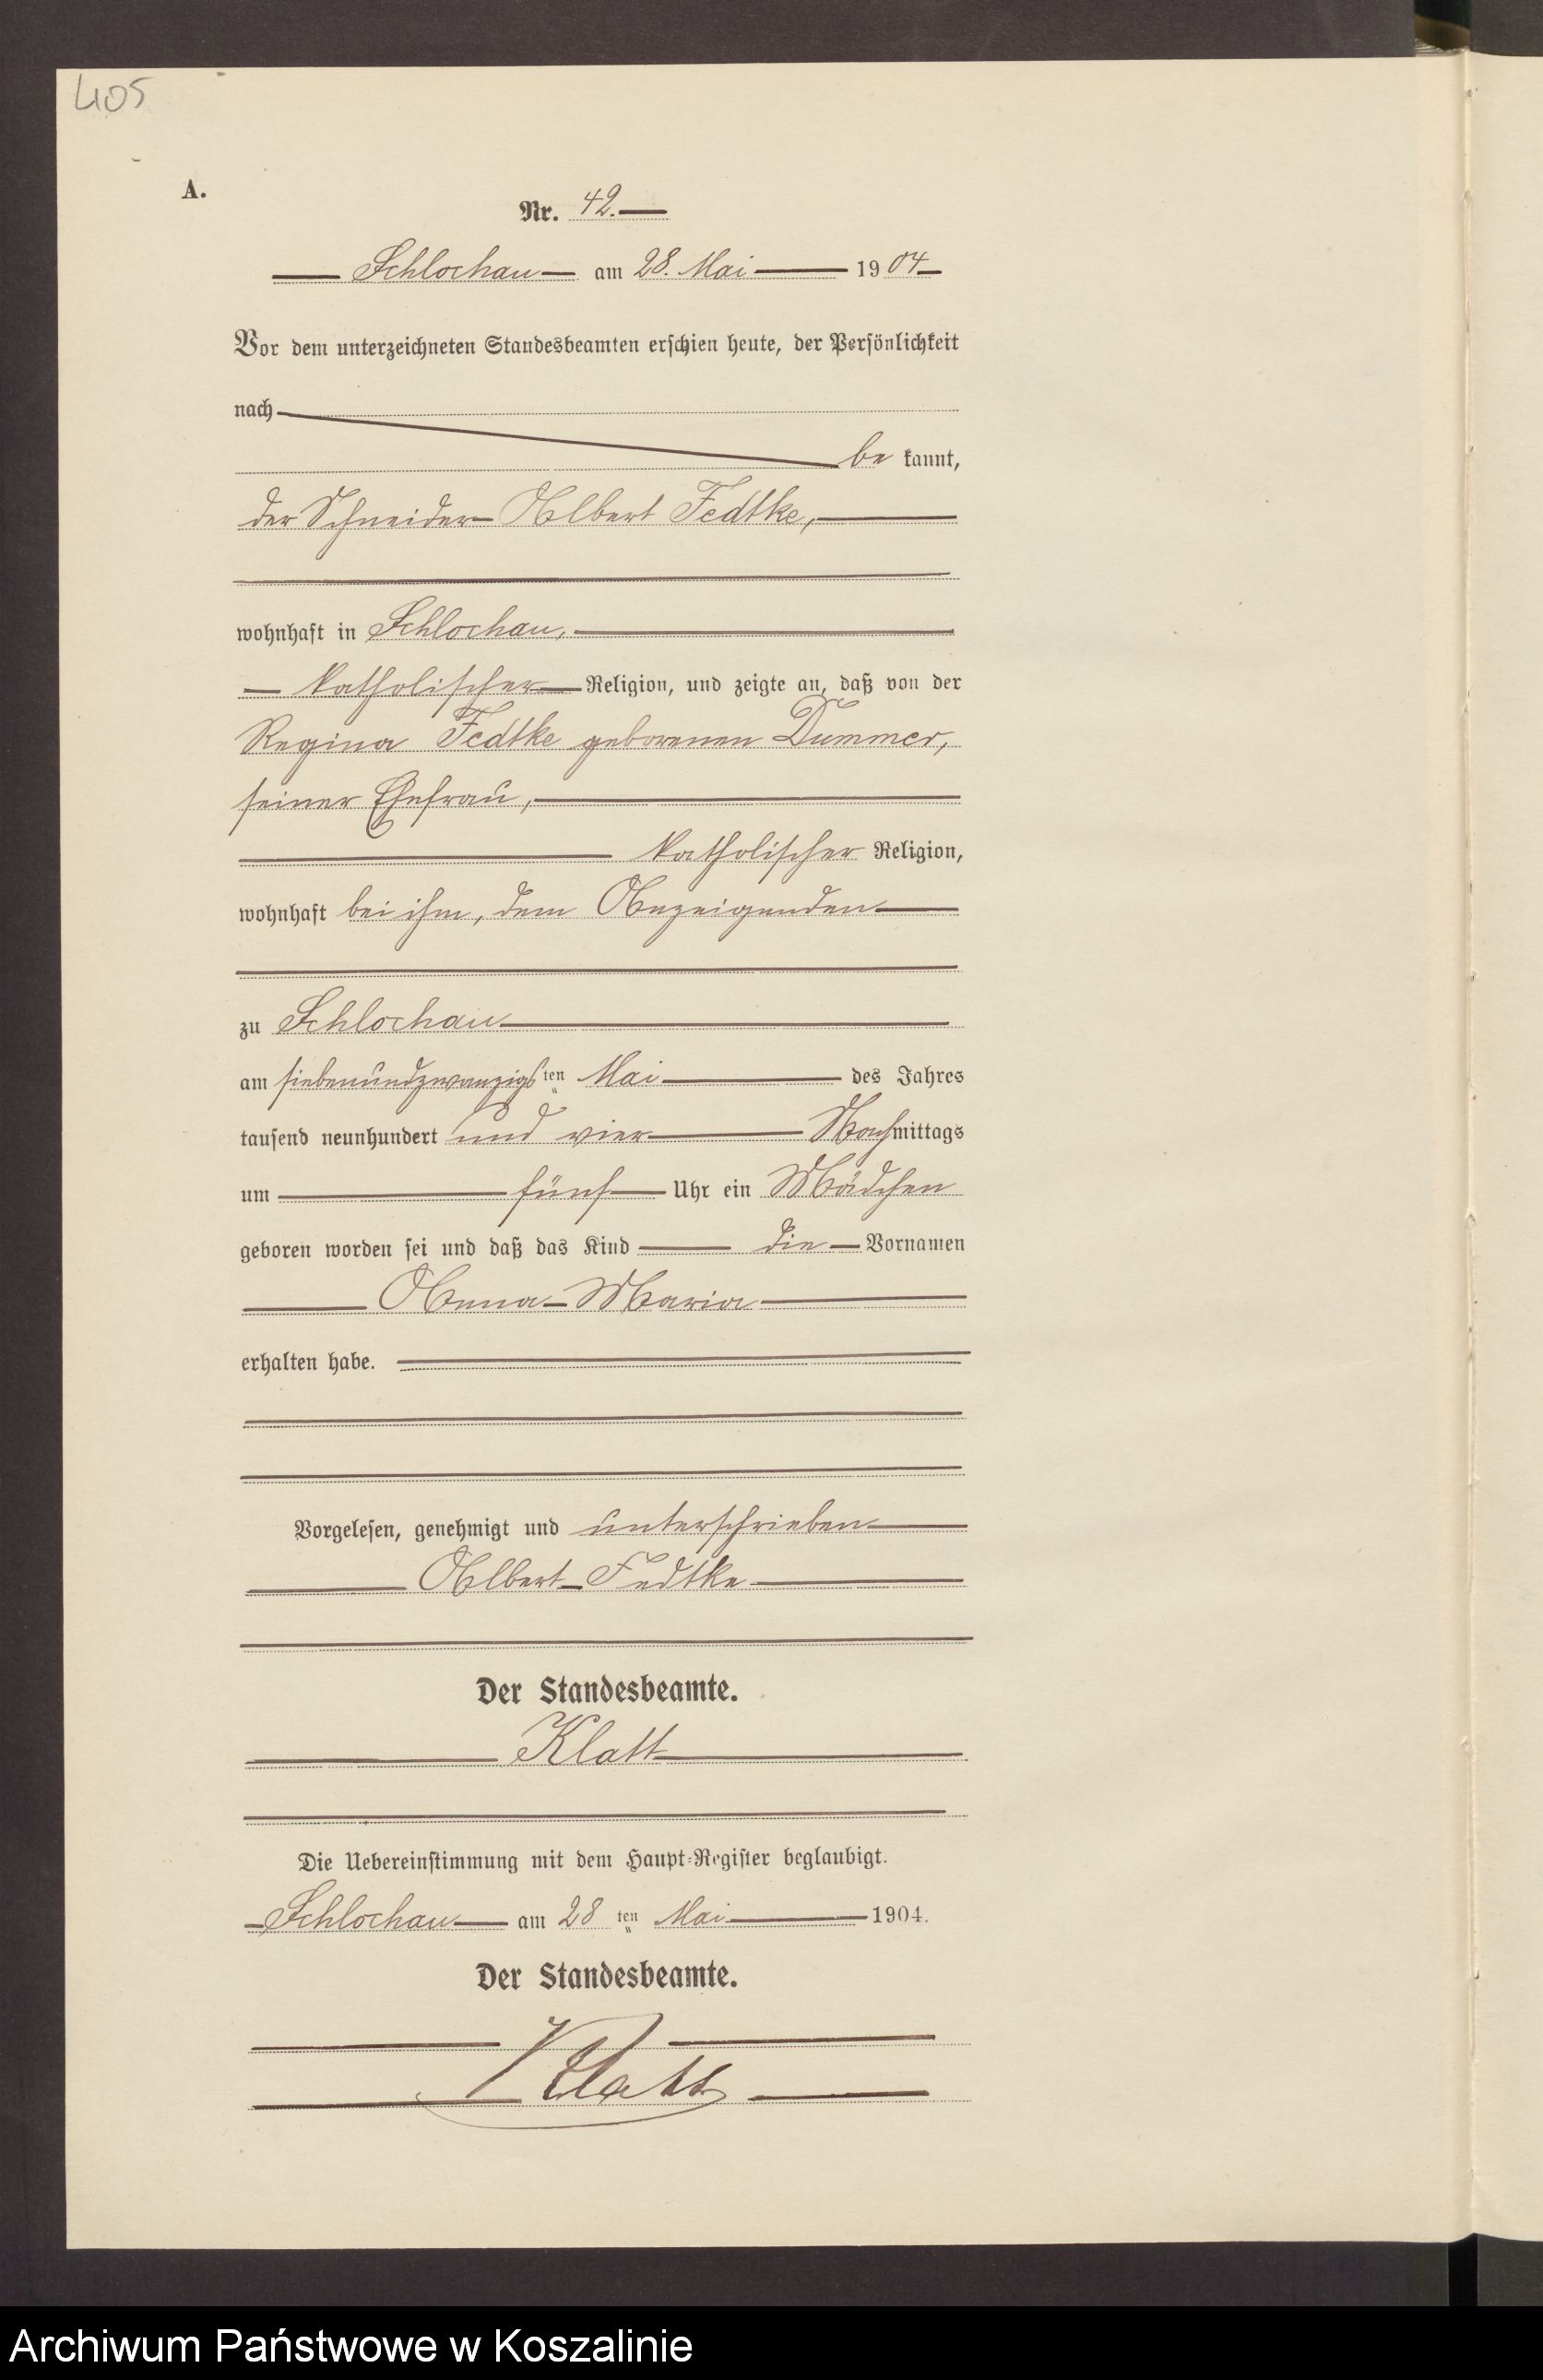 405
A.
Nr. 42.
Schlochau am 28. Mai 1904
Vor dem unterzeichneten Standesbeamten erschien heute, der Persönlichkeit
nach
be kannt,
der Schneider Albert Fedtke,
wohnhaft in Schlochau,
katholischer Religion, und zeigte an, daß von der
Regina Fedtke geborenen Dummer,
seiner Ehefrau,
katholischer Religion,
wohnhaft bei ihm, dem Anzeigenden
zu Schlochau
am siebenundzwanzigsten Mai des Jahres
tausend neunhundert und vier Nachmittags
um fünf Uhr ein Mädchen
geboren worden sei und daß das Kind die Vornamen
Anna Maria
erhalten habe.
Vorgelesen, genehmigt und unterschrieben
Albert Fedtke
Der Standesbeamte.
Klatt
Die Uebereinstimmung mit dem Haupt-Register beglaubigt.
Schlochau am 28 ten Mai 1904.
Der Standesbeamte.
Klatt
Archiwum Państwowe w Koszalinie